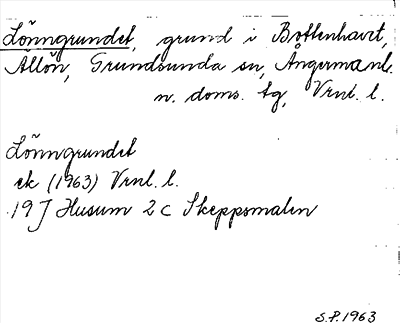 Lönngrundet, grund i Bottenhavet,
Ållön, Grundsunda sn, Ångermanl.
n. doms. tg, Vrnl. l.
Lönngrundet
ek (1963) Vrnl. l.
19 J Husum 2 c Skeppsmalen
S.P. 1963